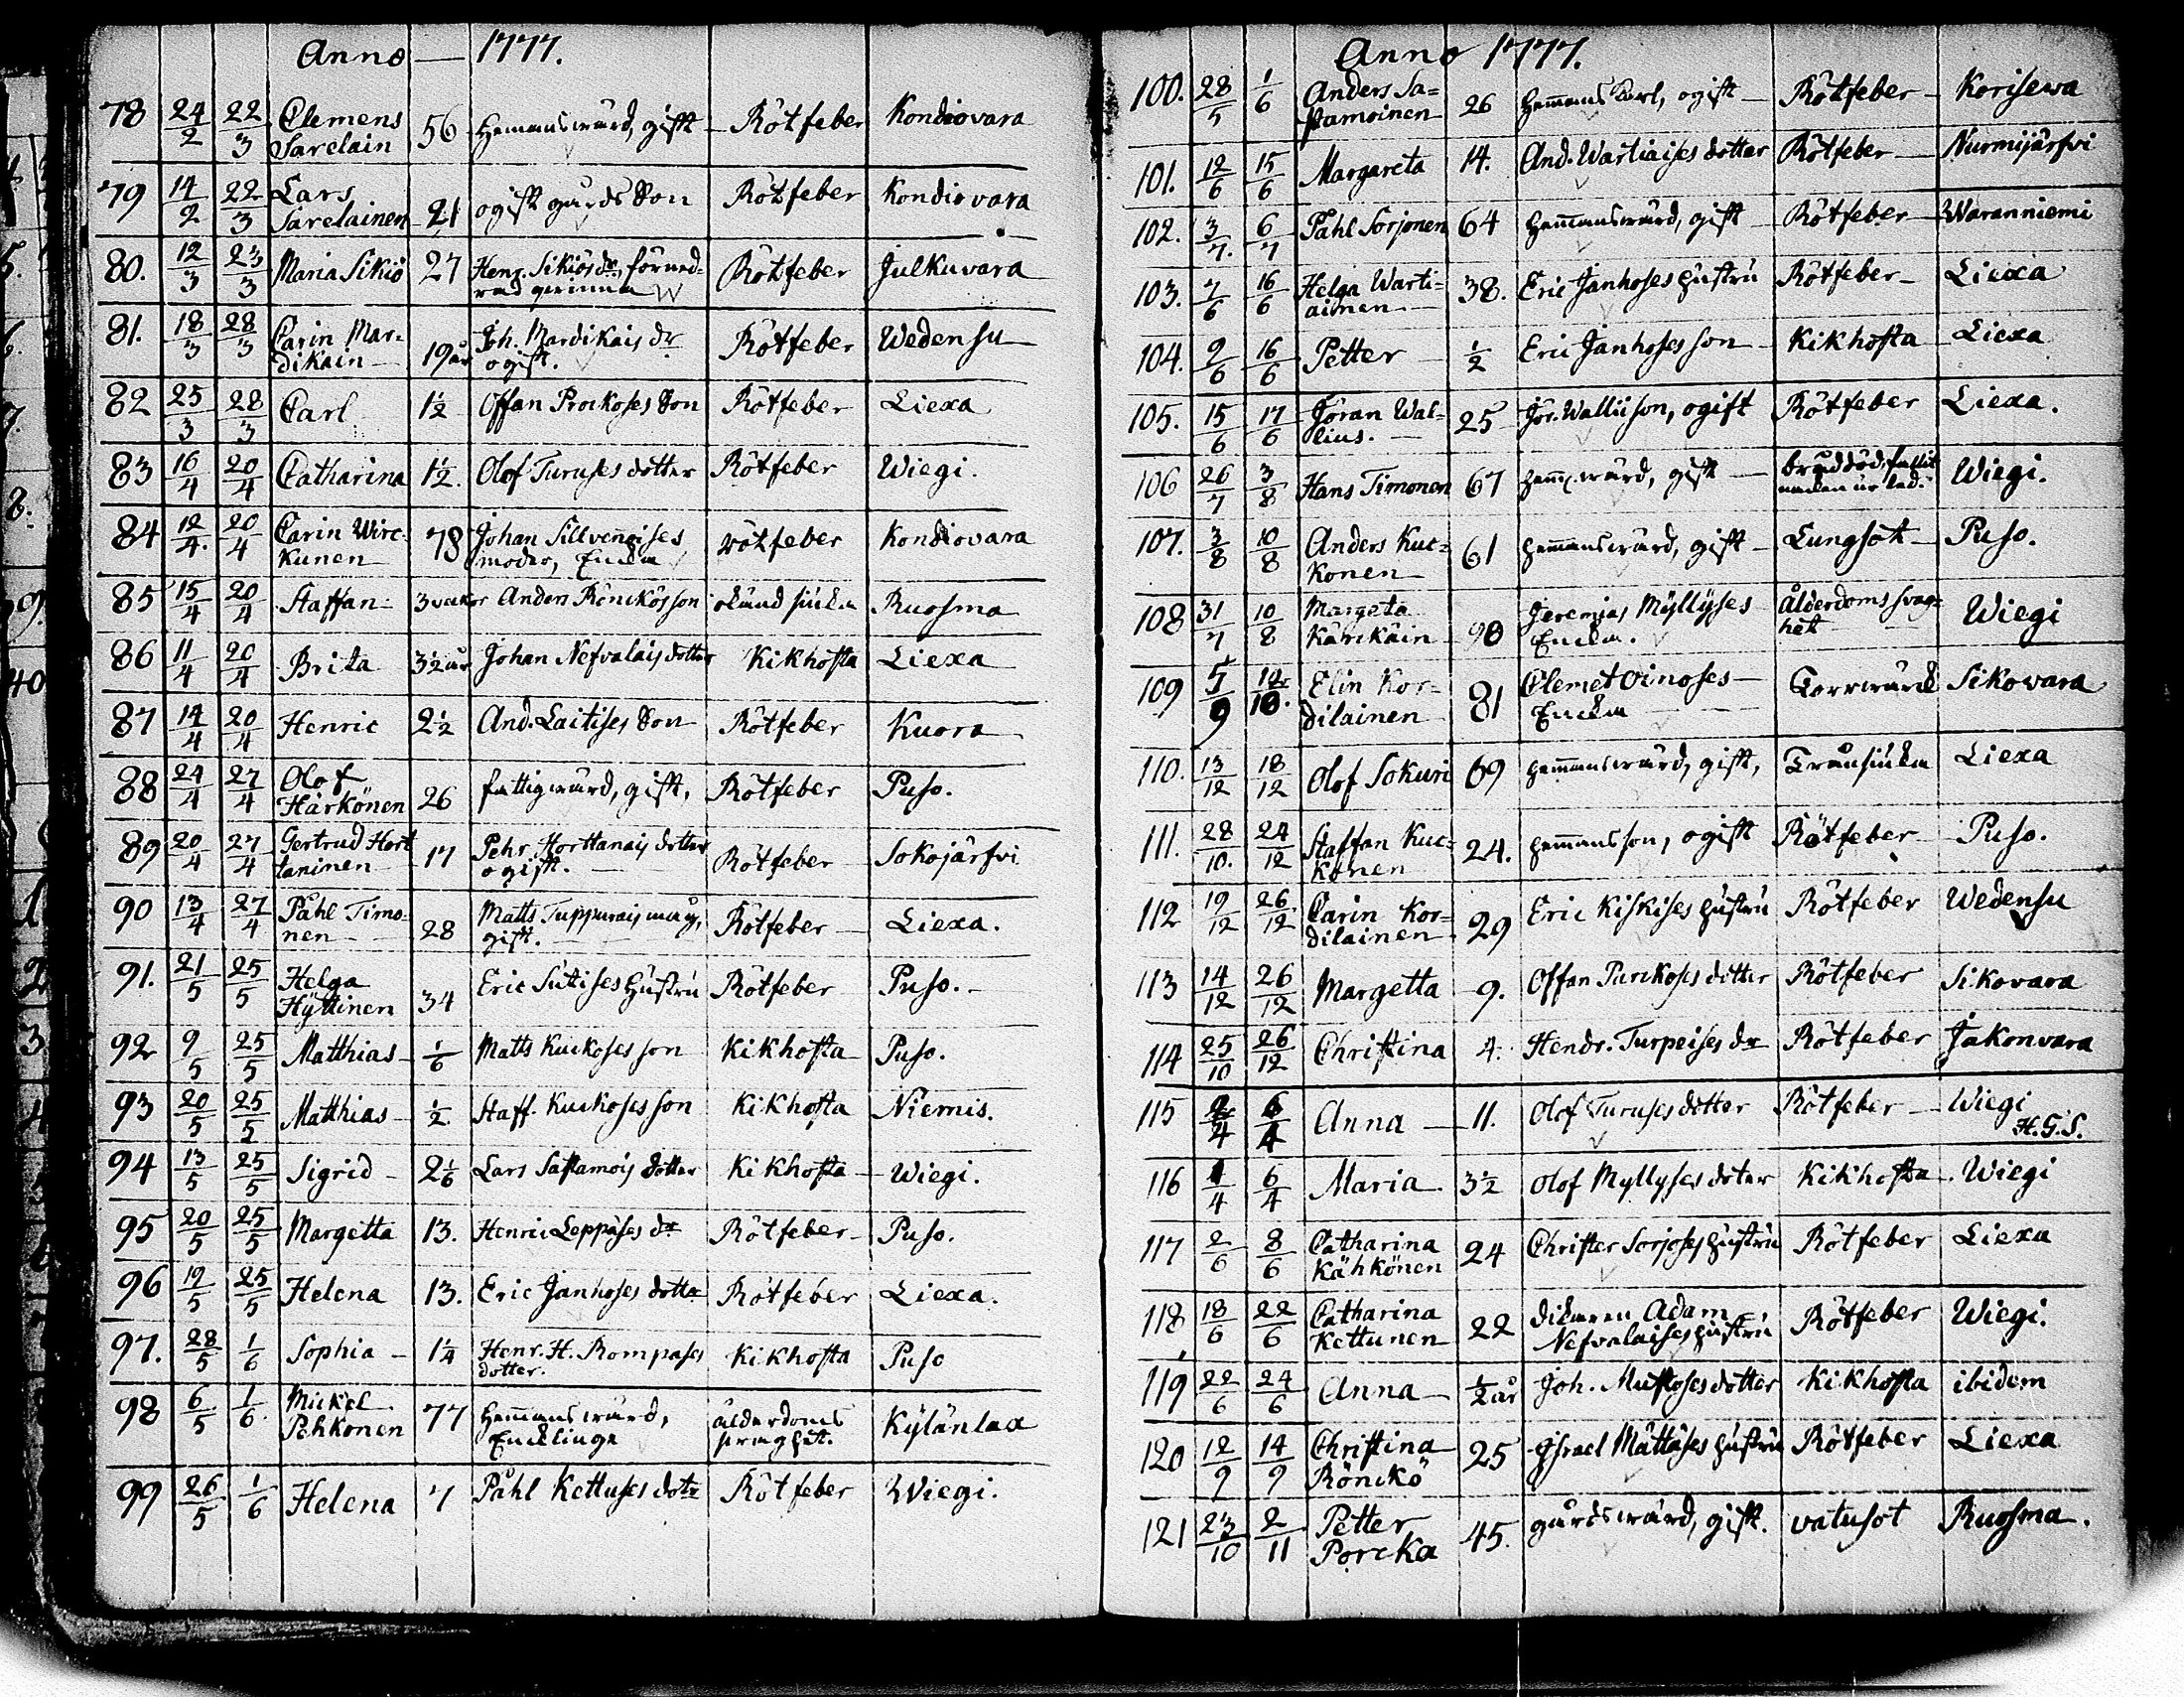 Anno — 1777.
78 24/2 22/3 Clemens Sarelain 56 Hemansvärd, gift Rötfeber Kondiovara
79 14/2 22/3 Lars Sarelainen 21 ogift gårds Son Rötfeber Kondiovara
80. 12/3 23/3 Maria Sikiö 27 Henr. Sikiös dr, Rötfeber Julkuvara
81. 18/3 28/3 Carin Mardikain 19 år Joh. Mardikais dr ogift. Rötfeber Wedensu
82 25/3 28/3 Carl 1½ Offan Prockoses Son Rötfeber Liexa
83 16/4 20/4 Catharina 1½. Olof Turuses dotter Rötfeber Wiegi.
84 12/4. 20/4 Carin Wirckunen 78 Johan Sillvenoises moder, Encka rötfeber Kondiovara
85 15/4 20/4 Staffan 3 veckor Anders Rönckös son okänd siuka Ruosma
86 11/4 20/4 Brita 3½ år Johan Nefvalais dotter Kikhosta Liexa
87 14/4 20/4 Henric 2½ And. Laitises Son Rötfeber Kuora
88 24/4 27/4 Olof Härkönen 26 fattigvärd, gift, Rötfeber Puso.
89 20/4 27/4 Gertrud Horttaninen 17 Pehr Horttanais dotter ogift. Rötfeber Sokojärfvi
90 13/4 27/4 Påhl Timonen 28 Matts Tuppurais måg, gift. Rötfeber Liexa.
91. 21/5 25/5 Helga Hÿttinen 34 Eric Sutises hustru Rötfeber Puso.
92 9/5 25/5 Matthias 1/6 Matts Kuckoses son Kikhosta Puso.
93 20/5 25/5 Matthias ½ Staff. Kuckoses son Kikhosta Niemis.
94 13/5 25/5 Sigrid 2 1/6 Lars Sastamois dotter Kikhosta Wiegi.
95 20/5 25/5 Margetta 13. Henric Leppäses dr Rötfeber Puso.
96 19/5 25/5 Helena 13. Eric Janhoses dotter Rötfeber Liexa.
97. 28/5 1/6 Sophia 1¼ Henr. H. Rompases dotter. Kikhosta Puso
98 6/5 1/6. Mickel Pehkonen 77 Hemmansvärd, Encklinge ålderdoms svaghet. Kÿlänlax
99 26/5 1/6 Helena 7 Påhl Kettuses dotr Rötfeber Wiegi.
Anno 1777.
100. 28/5 1/6 Anders Sastamoinen 26 hemmans Karl, ogift Rötfeber Korisewa
101. 12/6 15/6 Margareta 14. And. Wartiaises dotter Rötfeber Nurmijärfvi
102. 3/7. 6/7 Påhl Sorjonen 64 hemmansvärd, gift Rötfeber Waranniemi
103. 7/6 16/6 Helga Wartiainen 38. Eric Janhoses hustru Rötfeber Liexa
104. 9/6 16/6 Petter ½ Eric Janhoses son Kikhosta Liexa
105. 15/6 17/6 Jöran Wallius. 25 Jör. Wallii son, ogift Rötfeber Liexa.
106 26/7 3/8 Hans Timonen 67 hemm. värd, gift bråddöd, Wiegi.
107. 3/8 10/8 Anders Kuckonen 61 hemmansvärd, gift Lungsot Puso.
108 31/7 10/8 Margeta Kärckäin 90 Jeremias Mÿllÿses Encka. Ålderdoms svaghet Wiegi
109 5/9 12/10. Elin Kordilainen 81 Clemet Oinoses Encka Torrvärck Sikovara
110. 13/12 18/12 Olof Sokuri 69 hemmansvärd, gift, Liexa
111. 28/10. 24/12 Staffan Kuckonen 24. hemmans son, ogift Rötfeber Puso.
112 19/12 26/12 Carin Kordilainen 29 Eric Kiskises hustru Rötfeber Wedensu
113 14/12 26/12 Margetta 9. Offan Purckoses dotter Rötfeber Sikovara
114 25/10 26/12 Christina 4. Hendr. Turpeises dr Rötfeber Jakonvara
115 2/4 6/4 Anna 11. Olof Turuses dotter Rötfeber Wiegi H.G.S.
116 1/4 6/4 Maria 3½ Olof Myllyses doter Kikhosta Wiegi
117 2/6 8/6 Catharina Kähkönen 24 Christer Sorjoses hustru Rötfeber Liexa
118 18/6 22/6 Catharina Kettunen 22 Adam Nefvalaises hustru Rötfeber Wiegi.
119 22/6 24/6 Anna ½ år Joh. Mustoses dotter Kikhosta ibidem
120 12/9 14/9 Christina Rönckö 25 Israel Mättäses hustru Rötfeber Liexa
121 23/10 2/11 Petter Porcka 45. gårdsvärd, gift. vatusot Ruosma.